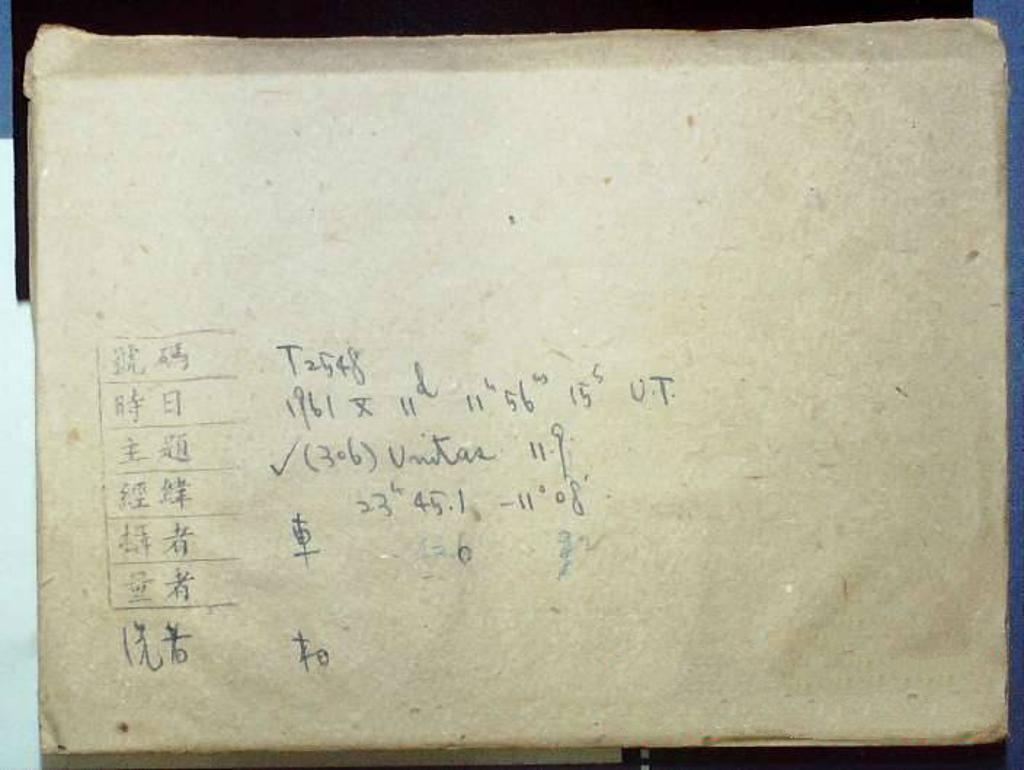 號碼 T2548
時日 1961 X 11d 11h 56m 15s U.T.
主題 ✓(306) Unitas 11.9
經緯 23h 45.1 -11°08'
攝者 車
量者
洗者 柏